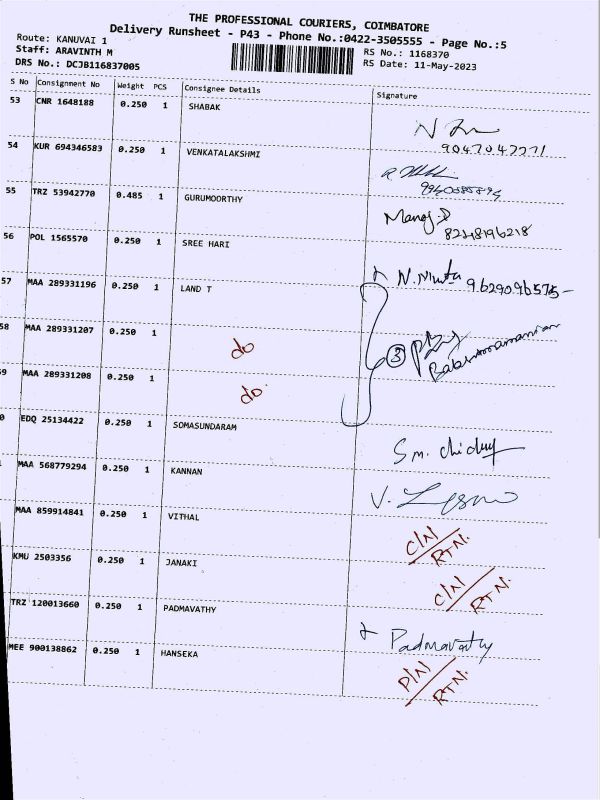 THE PROFESSIONAL COURIERS, COIMBATORE
Delivery Runsheet - P43 - Phone No.:0422-3505555 - Page No.:5
Route: KANUVAI 1
Staff: ARAVINTH M
DRS No.: DCJB116837005
RS No.: 1168370
RS Date: 11-May-2023
S No Consignment No Weight PCS Consignee Details Signature
53 CNR 1648188 0.250 1 SHABAK
9047047771
54 KUR 694346583 0.250 1 VENKATALAKSHMI
55 TRZ 53942770 0.485 1 GURUMOORTHY
Manoj
8248196218
56 POL 1565570 0.250 1 SREE HARI
9629096575-
57 MAA 289331196 0.250 1 LAND T
58 MAA 289331207 0.250 1 do
3
9 MAA 289331208 0.250 1 do
0 EDQ 25134422 0.250 1 SOMASUNDARAM
MAA 568779294 0.250 1 KANNAN
MAA 859914841 0.250 1 VITHAL
C/N/
RTN.
KMU 2503356 0.250 1 JANAKI
C/N/
RTN.
TRZ 120013660 0.250 1 PADMAVATHY
Padmavathy
MEE 900138862 0.250 1 HANSEKA
P/N/
RTN.